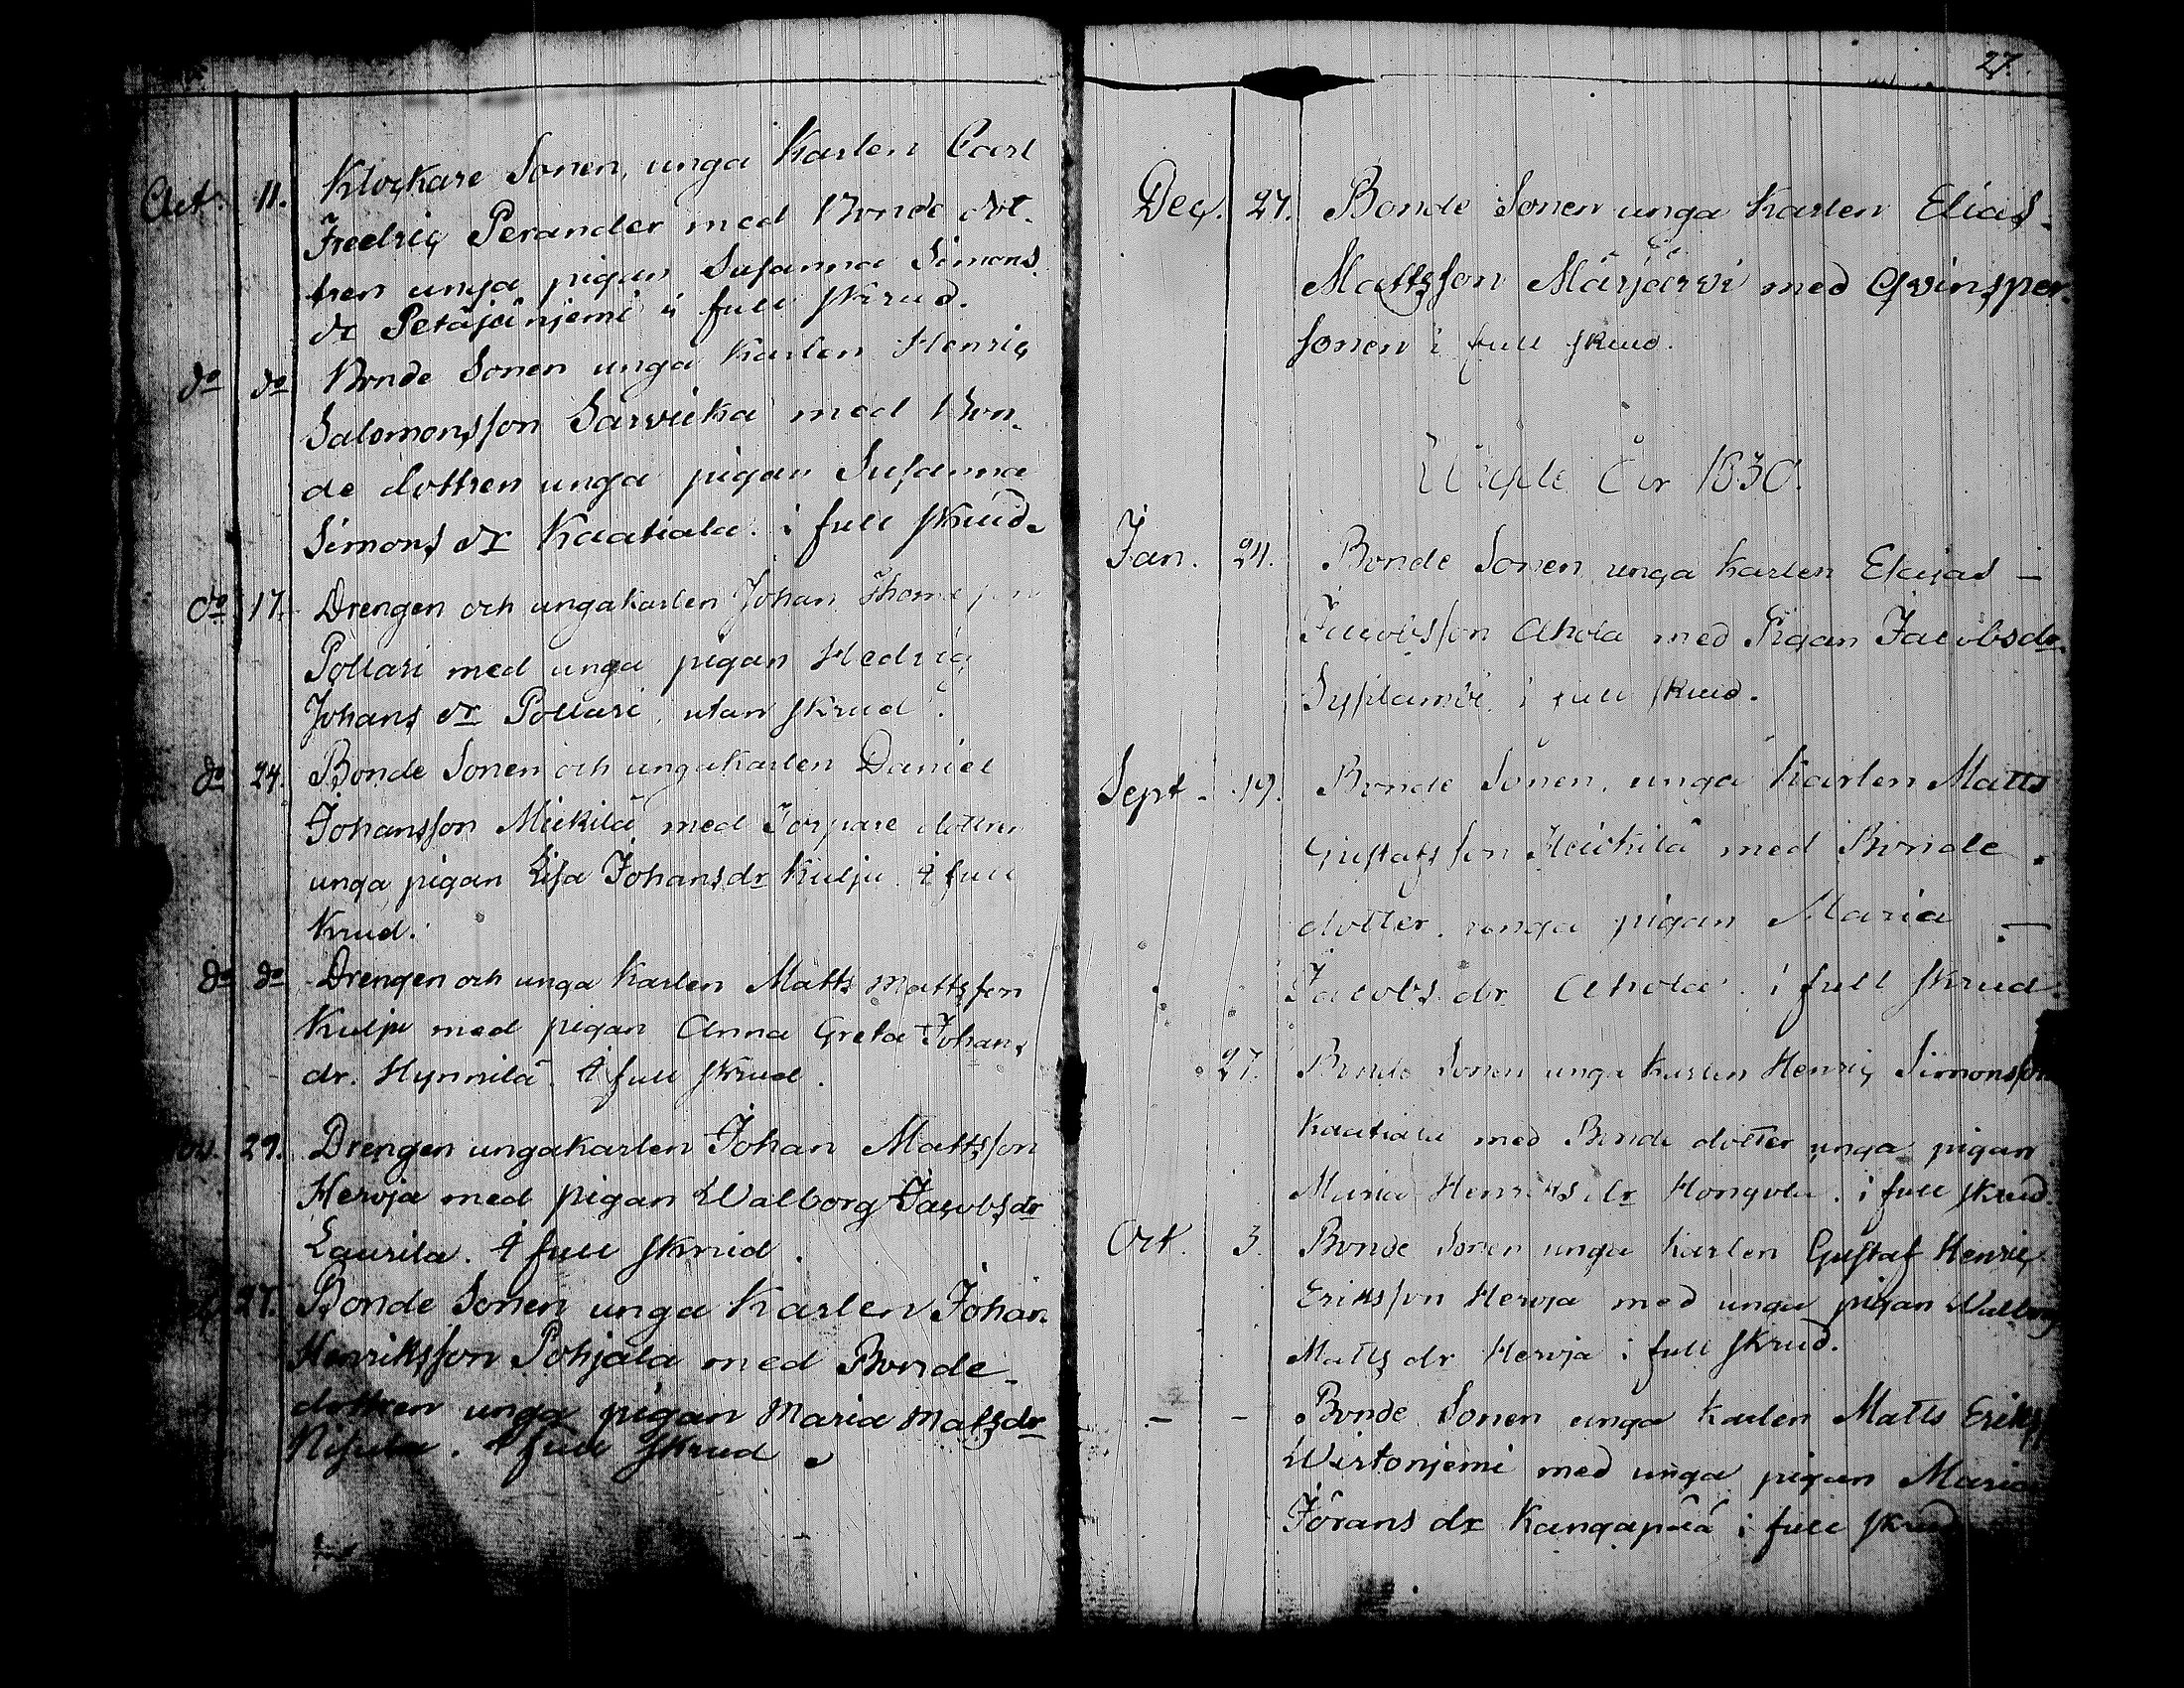 27.
Oct. 11. Klockare Sonen, unga Karlen Carl
Fredric Perander med Bonde dot-
tren unga pigan Susanna Simons
dr Petäjäniemi i full skrud.
do do Bonde Sonen unga Karlen Henric
Salomonsson Sarvicka med Bon-
de dottren unga pigan Susanna
Simons dr Kaatiala. i full skrud.
do 17. Drengen och ungakarlen Johan Thomesson
Pollari med unga pigan Hedvig
Johans dr Pollari, utan skrud.
do 24. Bonde Sonen och ungakarlen Daniel
Johansson Mickilä med Torpare dottren
unga pigan Lisa Johansdr Kulju. i full
skrud.
do do Drengen och unga Karlen Matts Mattsson
Kulju med pigan Anna Greta Johans
dr. Hynnilä. i full skrud.
Nov. 29. Drengen ungakarlen Johan Mattsson
Hervja med pigan Walborg Jacobsdr
Laurila. i full skrud.
27. Bonde Sonen unga Karlen Johan
Henriksson Pohjala med Bonde-
dottren unga pigan Maria Matsdr
Nisula. i full skrud.
Dec. 27. Bonde Sonen unga Karlen Elias
Mattsson Märjärvi med Qvinsper-
sonen i full skrud.
Wigde År 1830.
Jan. 24. Bonde Sonen unga Karlen Elias –
Jacobsson Ahola med Pigan Jacobsdr
i full skrud.
Sept. 19. Bonde Sonen, unga Karlen Matts
Gustafsson Heickilä med Bonde
dotter, unga pigan Maria –
Jacobs dr Ahola. i full skrud.
27. Bonde Sonen unga Karlen Henric Simonsson
Kaatiala med Bonde dotter unga pigan
Maria Henriks dr Hongola. i full skrud.
Oct. 3. Bonde Sonen unga Karlen Gustaf Henric
Eriksson Hervja med unga pigan Walborg
Matts dr Hervja i full skrud.
– – Bonde Sonen unga Karlen Matts Eriks
Wirtaniemi med unga pigan Maria
Jörans dr Kangapää i full skrud